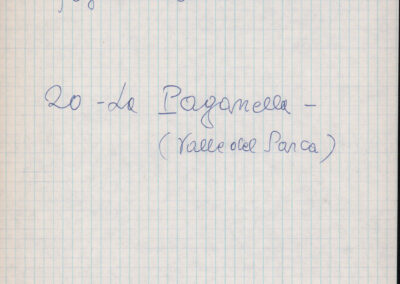 20 - La Paganella -
(Valle del Sarca)